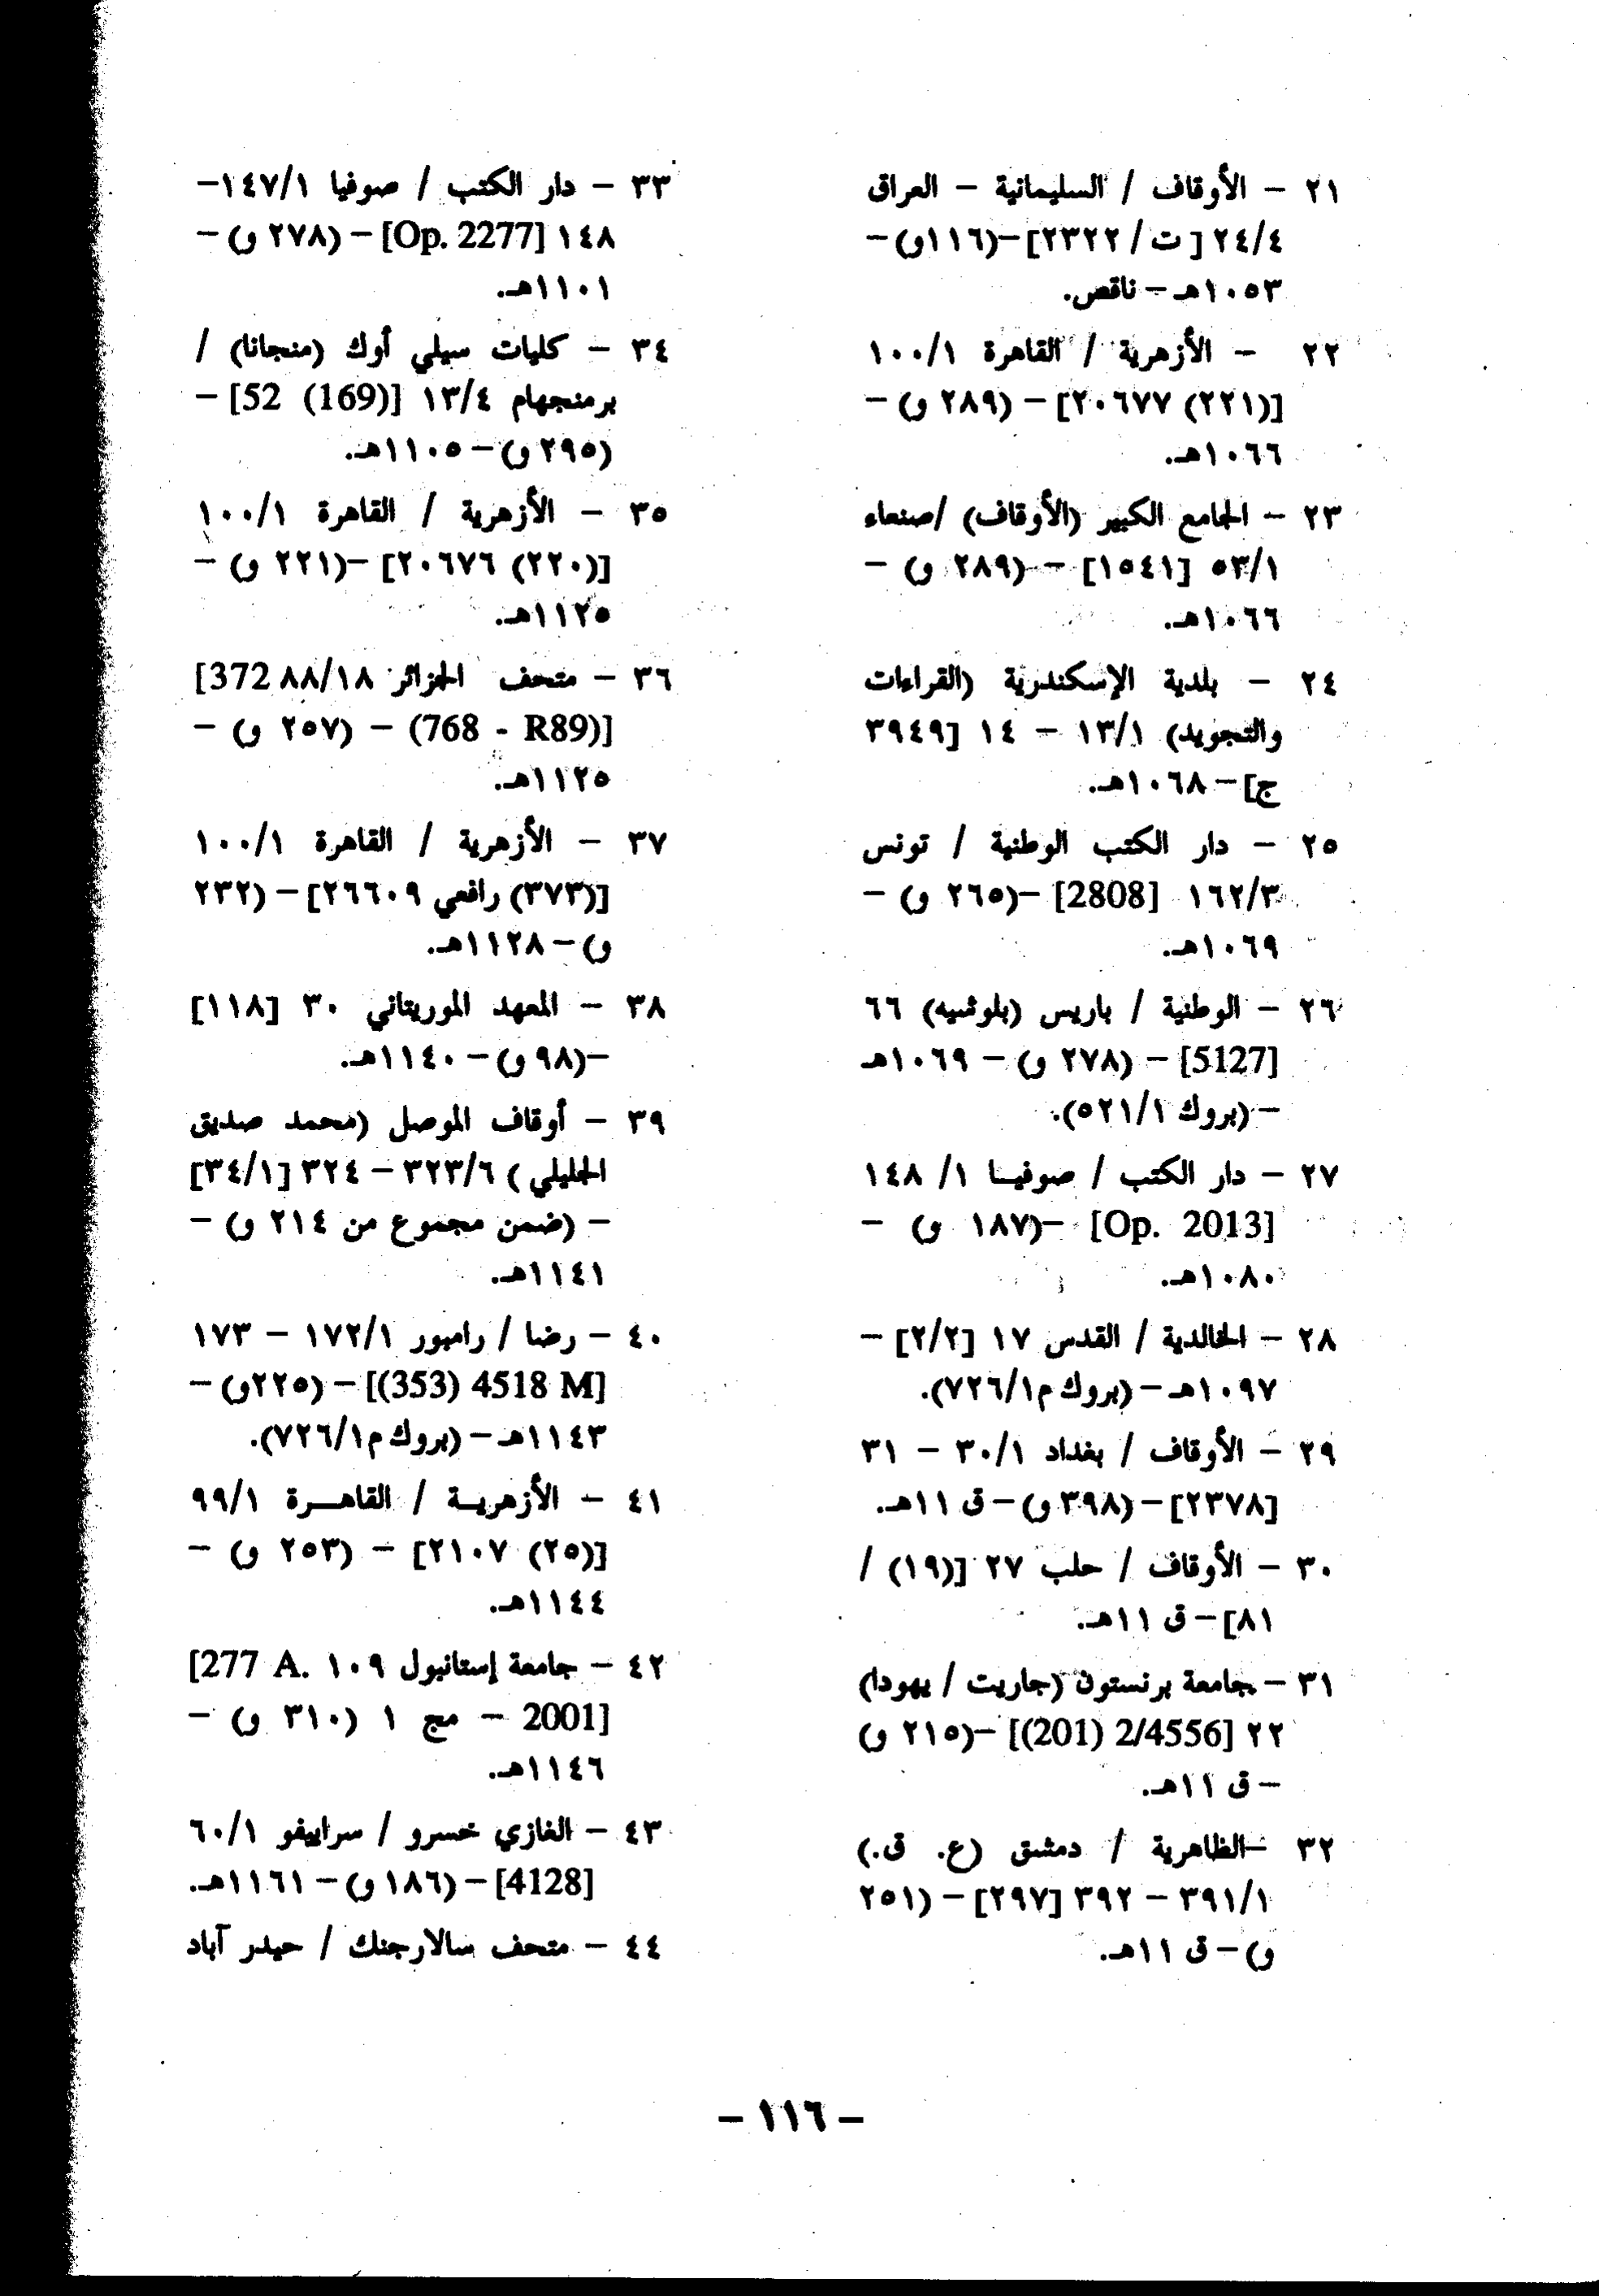 ٢١ – الأوقاف / السليمانية – العراق
٢٤/٤ [ت/ ٢٣٢٢] –(١١٦و)–
١٠٥٣هـ – ناقص.
٢٢ – الأزهرية / القاهرة ١٠٠/١
[(٢٢١) ٢٠٦٧٧] – (٢٨٩ و) –
١٠٦٦هـ.
٢٣ – الجامع الكبير (الأوقاف) /صنعاء
٥٣/١ [١٥٤١] – (٢٨٩ و) –
١٠٦٦هـ.
٢٤ – بلدية الإسكندرية (القراءات
والتجويد) ١٣/١ – ١٤ [٣٩٤٩
ج] – ١٠٦٨هـ.
٢٥ – دار الكتب الوطنية / تونس
١٦٢/٣ [2808] –(٢٦٥ و) –
١٠٦٩هـ.
٢٦ – الوطنية / باريس (بلوشيه) ٦٦
[5127] – (٢٧٨ و) – ١٠٦٩هـ
– (بروك ٥٢١/١).
٢٧ – دار الكتب / صوفيـا ١/ ١٤٨
[Op. 2013] –(١٨٧ و) –
١٠٨٠هـ.
٢٨ – الخالدية / القدس ١٧ [٢/٢] –
١٠٩٧هـ – (بروك م٧٢٦/١).
٢٩ – الأوقاف / بغداد ٣٠/١ – ٣١
[٢٣٧٨] – (٣٩٨ و) – ق ١١هـ.
٣٠ – الأوقاف / حلب ٢٧ [(١٩) /
٨١] – ق ١١هـ.
٣١ – جامعة برنستون (جاريت / يهودا)
٢٢ [2/4556 (201)] –(٢١٥ و)
– ق ١١هـ.
٣٢ –الظاهرية / دمشق (ع. ق.)
٣٩١/١ – ٣٩٢ [٢٩٧] – (٢٥١
و) – ق ١١هـ.
٣٣ – دار الكتب / صوفيا ١٤٧/١–
١٤٨ [Op. 2277] – (٢٧٨ و) –
١١٠١هـ.
٣٤ – كليات سيلي أوك (منجانا) /
برمنجهام ١٣/٤ [(169) 52] –
(٢٩٥ و) – ١١٠٥هـ.
٣٥ – الأزهرية / القاهرة ١٠٠/١
[(٢٢٠) ٢٠٦٧٦] –(٢٢١ و) –
١١٢٥هـ.
٣٦ – متحف الجزائر ٨٨/١٨ 372]
[(768 - R89) – (٢٥٧ و) –
١١٢٥هـ.
٣٧ – الأزهرية / القاهرة ١٠٠/١
[(٣٧٣) رافعي ٢٦٦٠٩] – (٢٣٢
و) – ١١٢٨هـ.
٣٨ – المعهد الموريتاني ٣٠ [١١٨]
–(٩٨ و) – ١١٤٠هـ.
٣٩ – أوقاف الموصل (محمد صديق
الجليلي ) ٣٢٣/٦ – ٣٢٤ [٣٤/١]
– (ضمن مجموع من ٢١٤ و) –
١١٤١هـ.
٤٠ – رضا / رامبور ١٧٢/١ – ١٧٣
[(353) 4518 M] – (٢٢٥و) –
١١٤٣هـ – (بروك م٧٢٦/١).
٤١ – الأزهريـة / القاهـرة ٩٩/١
[(٢٥) ٢١٠٧] – (٢٥٣ و) –
١١٤٤هـ.
٤٢ – جامعة إستانبول ١٠٩ .277 A]
[2001 – مج ١ (٣١٠ و) –
١١٤٦هـ.
٤٣ – الغازي خسرو / سراييفو ٦٠/١
[4128] – (١٨٦ و) – ١١٦١هـ.
٤٤ – متحف سالارجنك / حيدر آباد
– ١١٦ –